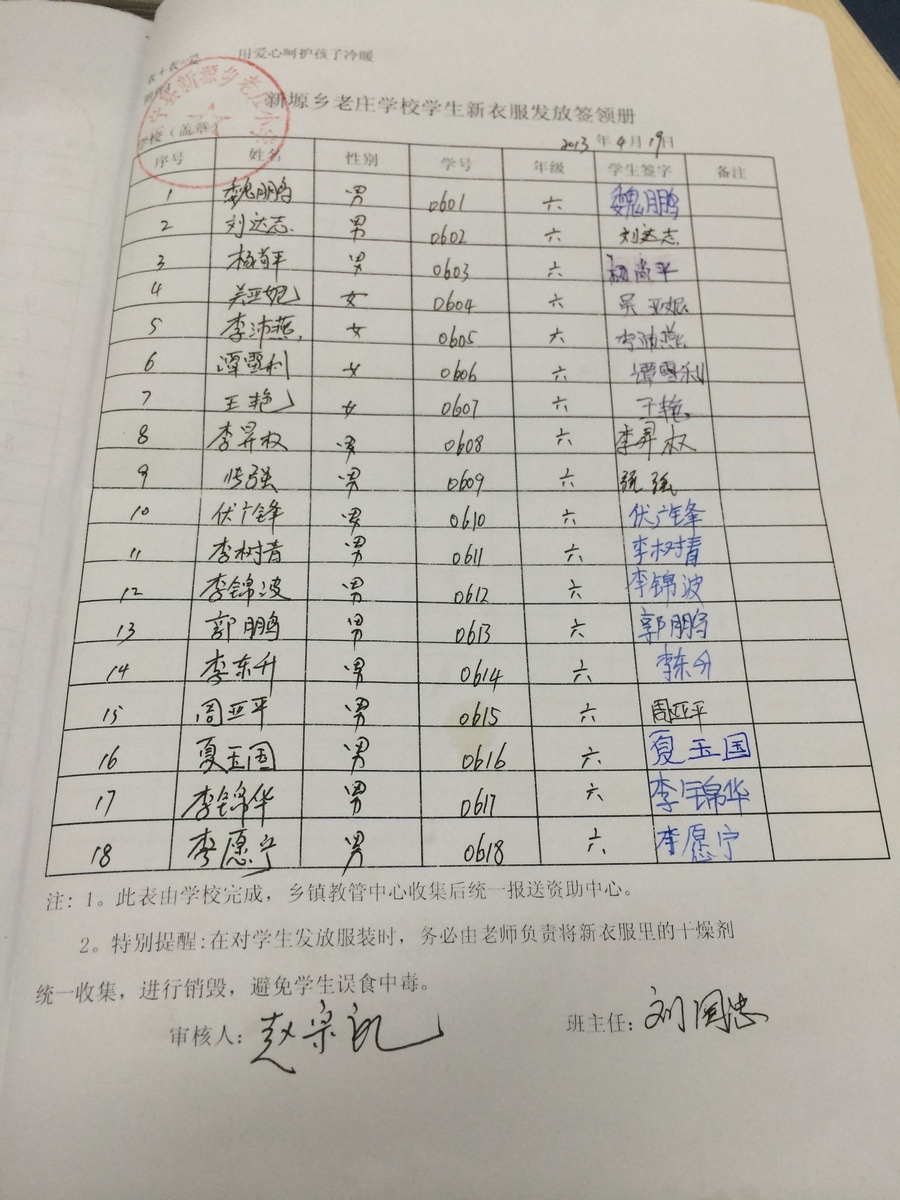 用爱心呵护孩子冷暖
新塬乡老庄学校学生新衣服发放签领册
学校（盖章）
2013 年 4 月 19 日
序号 姓名 性别 学号 年级 学生签字 备注
1 魏朋鹏 男 0601 六 魏朋鹏
2 刘达志 男 0602 六 刘达志
3 杨尚平 男 0603 六 杨尚平
4 吴亚妮 女 0604 六 吴亚妮
5 李沛燕 女 0605 六 李沛燕
6 谭雪利 女 0606 六 谭雪利
7 王艳 女 0607 六 王艳
8 李昇权 男 0608 六 李昇权
9 张强 男 0609 六 张强
10 伏广锋 男 0610 六 伏广锋
11 李树青 男 0611 六 李树青
12 李锦波 男 0612 六 李锦波
13 郭鹏 男 0613 六 郭鹏
14 李东升 男 0614 六 李东升
15 周亚平 男 0615 六 周亚平
16 夏玉国 男 0616 六 夏玉国
17 李锦华 男 0617 六 李锦华
18 李愿宁 男 0618 六 李愿宁
注: 1。此表由学校完成，乡镇教管中心收集后统一报送资助中心。
2。特别提醒:在对学生发放服装时，务必由老师负责将新衣服里的干燥剂
统一收集，进行销毁，避免学生误食中毒。
审核人: 赵宗 班主任: 刘国忠